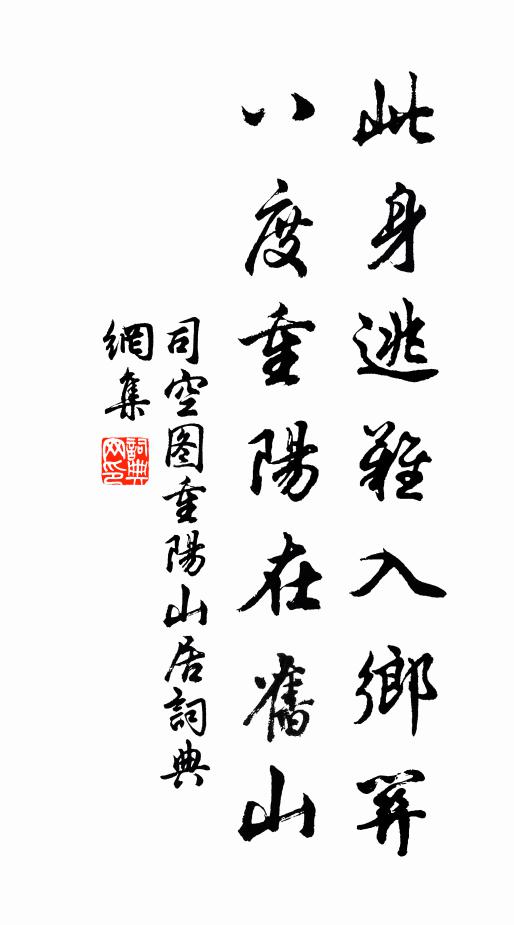 此身逃難入鄉關
八度重陽在舊山
司空图重陽山居詞典
網集
詞典網印